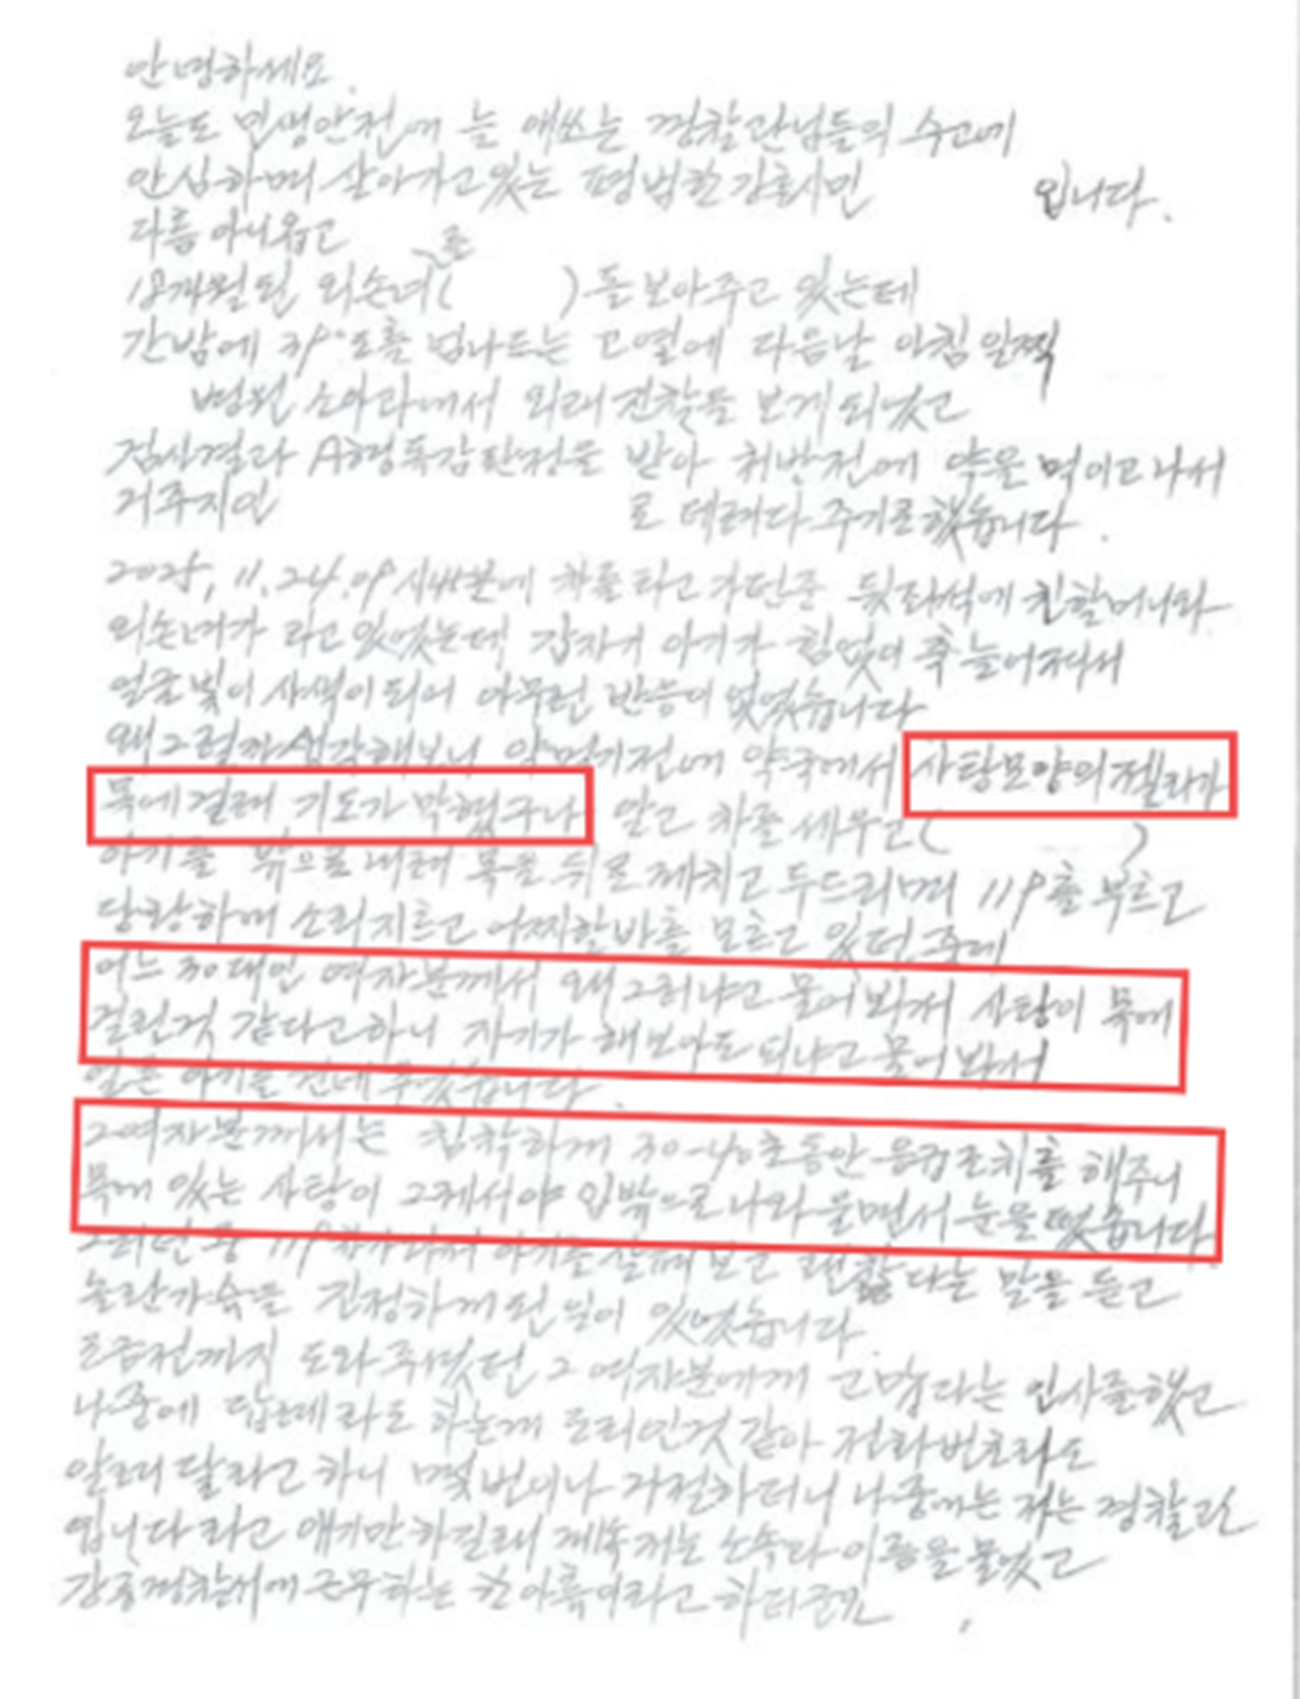 안녕하세요.
오늘도 민생안전에 늘 애쓰는 경찰관님들의 수고에
안심하며 살아가고있는 평범한 강릉시민 입니다.
다름 아니옵고
18개월된 외손녀( )를 돌보아주고 있는데
간밤에 39°도를 넘나드는 고열에 다음날 아침 일찍
병원 소아과에서 외래 진찰을 보게 되었고
검사결과 A형독감판정을 받아 귀반전에 약을 먹이고나서
거주지인 로 데려다 주기로 했습니다.
2025, 11. 24. 09시 분에 차를 타고 가던중 뒷좌석에 친할머니와
외손녀가 타고 있었는데 갑자기 아기가 힘없이 축 늘어져서
얼굴빛이 사색이 되어 아무런 반응이 없었습니다
왜 그럴까 생각해보니 약먹기전에 약국에서 사탕모양의 젤리가
목에 걸려 기도가 막혔구나 알고 차를 세우고( )
아기를 밖으로 내려 목을 뒤로 제치고 두드리며 119를 부르고
당황하여 소리지르고 어찌할바를 모르고 있던 중에
어느 30대인 여자분께서 왜 그러냐고 물어봐서 사탕이 목에
걸린것 같다고하니 자기가 해보아도 되냐고 물어 봐서
얼른 아기를 건네 주었습니다.
그여자분께서는 침착하게 30-40초동안 응급조치를 해주니
목에 있는 사탕이 그제서야 입밖으로 나와 울면서 눈을 떴습니다.
그러던 중 119차가 와서 아기를 살펴 보곤 괜찮다는 말을 듣고
놀란가슴을 진정하게된 일이 있었습니다.
조금전까지 도와 주셨던 그 여자분에게 고맙다는 인사를 했고
나중에 답례라도 하는게 도리인것 같아 전화번호라도
알려 달라고 하니 몇번이나 거절하더니 나중에는 저는 경찰관
입니다 라고 얘기만 하길래 계속 저는 소속과 이름을 물었고
강릉경찰서에 근무하는 한아름이라고 하더군요.